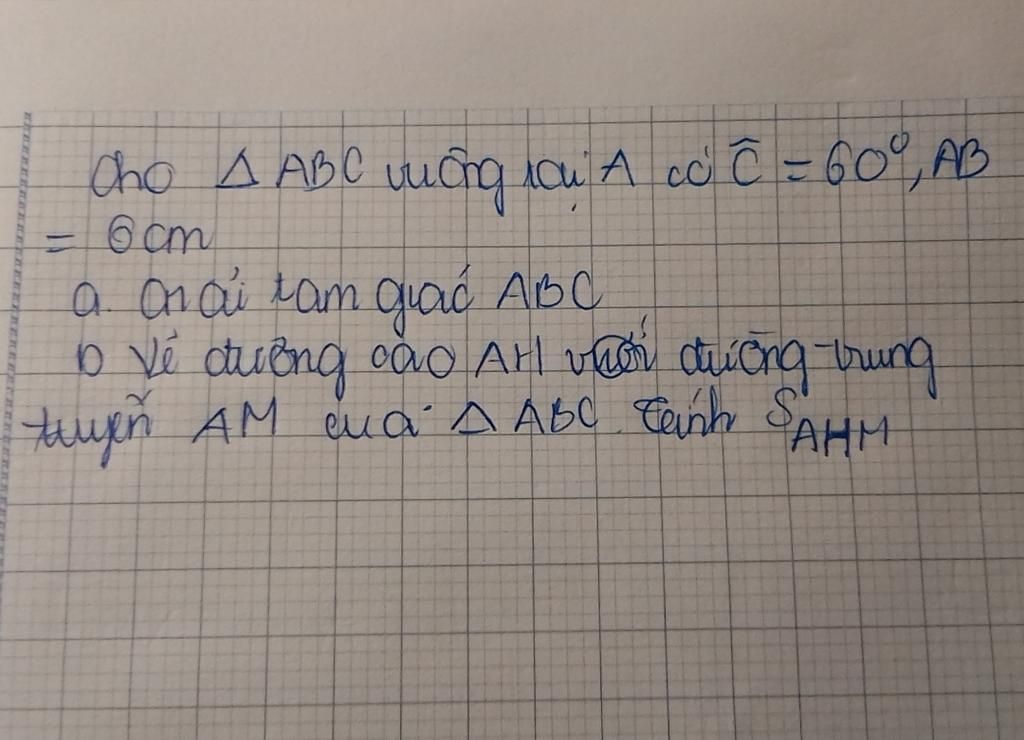 Cho Δ ABC vuông tại A có Ĉ = 60⁰, AB
= 6cm
a. Giải tam giác ABC
b Vẽ đường cao AH với đường trung
tuyến AM của Δ ABC tính S_AHM